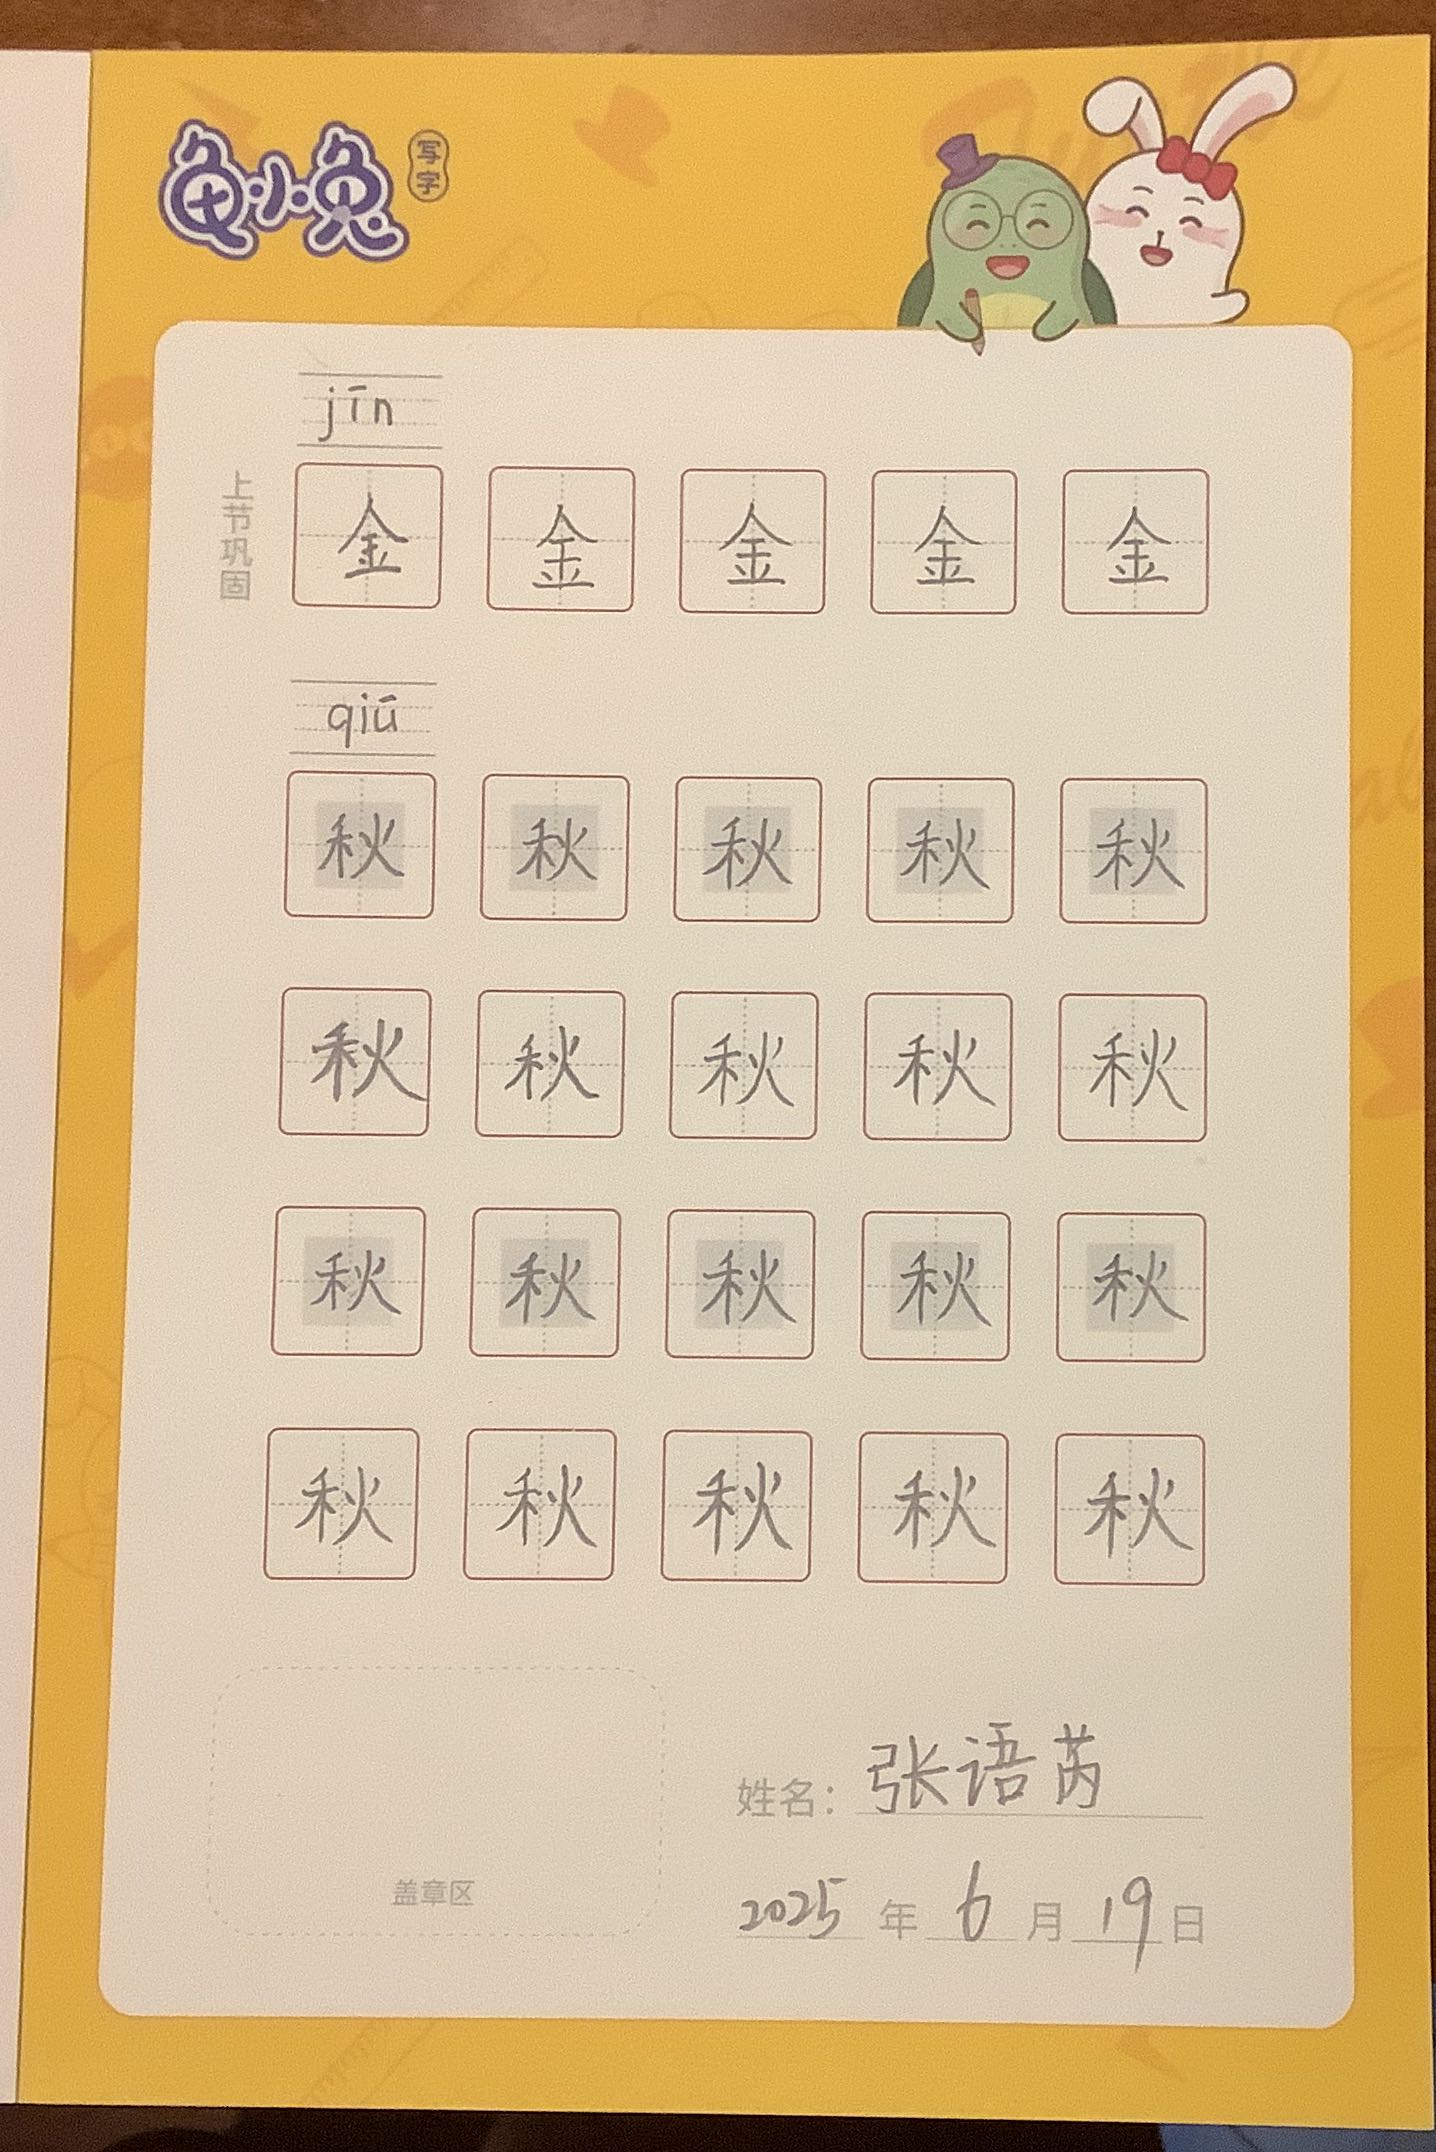 龟小兔 写字
jīn
上节巩固
金 金 金 金 金
qiū
秋 秋 秋 秋 秋
秋 秋 秋 秋 秋
秋 秋 秋 秋 秋
秋 秋 秋 秋 秋
姓名：张语芮
盖章区
2025 年 6 月 19 日